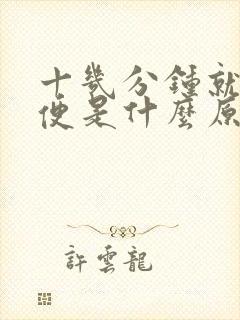 十幾分鍾就
便是什麼原
許雲龍